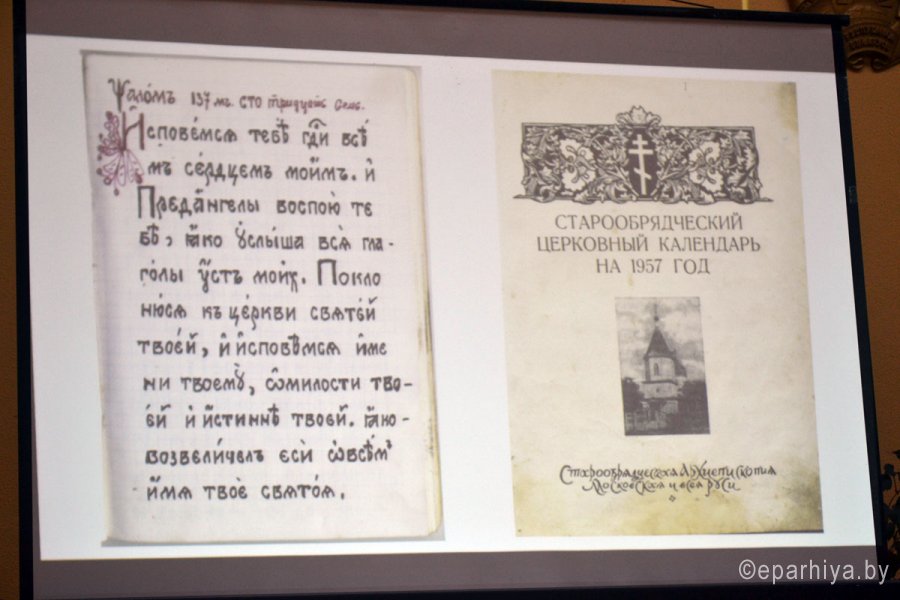 Ѱало́мъ 137мъ. сто тридцать семь.
Исповѣ́мся тебѣ̀ гд҇и всѣ́
мъ се́рдцемъ мои́мъ. и҆
Предаⷩ҇гелы воспою̀ те
бѣ̀, ꙗ҆́ко ᲂу҆слы́ша всѧ̀ гла-
го́лы ᲂу҆́стъ мои́хъ. Покло
ню́ся къ це́ркви святѣ́й
твое́й, и҆ и҆сповѣ́мся и҆́ме
ни твоемꙋ̀, ѡ҆милости тво-
е́й и҆ и҆́стиннѣ твое́й. ꙗ҆́ко-
возвели́челъ є҆сѝ ѡ҆всѣ́мъ
и҆́мя твоѐ свято́я.
СТАРООБРЯДЧЕСКИЙ
ЦЕРКОВНЫЙ КАЛЕНДАРЬ
НА 1957 ГОД
Старообрядческая Архиепископия
Московская и всея Руси
©eparhiya.by